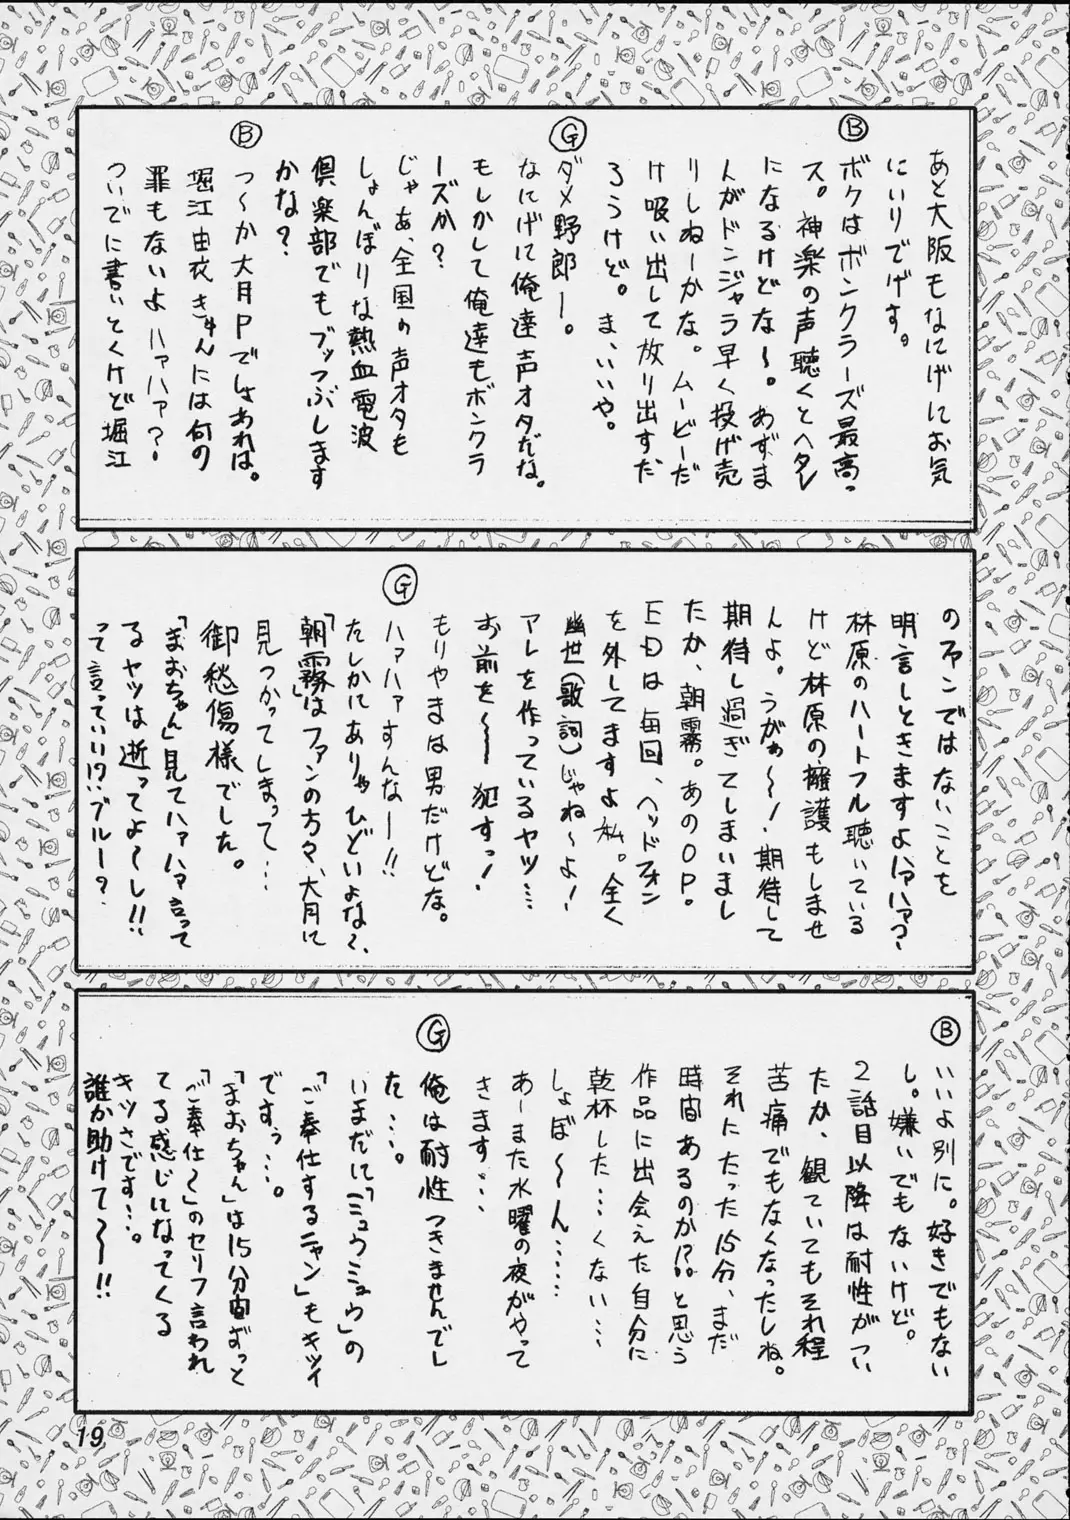 あと大阪もなにげにお気
にいりでげす。
Ⓑ
ボクはボンクラーズ最高っ
ス。神楽の声聴くとヘタレ
になるけどな〜。あずま
んがドンジャラ早く投げ売
りしねーかな。ムービーだ
け吸い出して放り出すだ
ろうけど。ま、いいや。
Ⓖ
ダメ野郎ー。
なにげに俺達声オタだな。
もしかして俺達もボンクラ
ーズか?
じゃあ、全国の声オタも
しょんぼりな熱血電波
倶楽部でもブッつぶします
かな?
Ⓑ
つ〜か大月Pでしょあれは。
堀江由衣さんには何の
罪もないよハァハァ?
ついでに書いとくけど堀江
のファンではないことを
明言しときますよハァハァ?
林原のハートフル聴いている
けど林原の擁護もしませ
んよ。うがぁ〜〜!期待して
期待し過ぎてしまいまし
たか、朝霧。あのOP。
EDは毎回、ヘッドフォン
を外してますよ私。全く
幽世(歌詞)じゃね〜よ!
アレを作っているヤツ…
お前を〜〜犯すっ!
もりやまは男だけどな。
Ⓖ
ハァハァすんなー!!
たしかにありゃひどいよな〜、
「朝霧」はファンの方々、大月に
見つかってしまって…
御愁傷様でした。
「まおちゃん」見てハァハァ言って
るヤツは逝ってよ〜し!!
って言っていい!?ブルー?
Ⓑ
いいよ別に。好きでもない
し。嫌いでもないけど。
2話目以降は耐性がつい
たか、観ていてもそれ程
苦痛でもなくなったしね。
それにたった15分、まだ
時間あるのか!?と思う
作品に出会えた自分に
乾杯した…くない…
しょぼ〜〜ん……
あーまた水曜の夜がやって
きます…
Ⓖ
俺は耐性つきませんでし
た…。
いまだに「ミュウミュウ」の
「ご奉仕するニャン」もキツイ
ですっ…。
「まおちゃん」は15分間ずっと
「ご奉仕〜」のセリフ言われ
てる感じになってくる
キツさです…。
誰か助けて〜〜!!
19